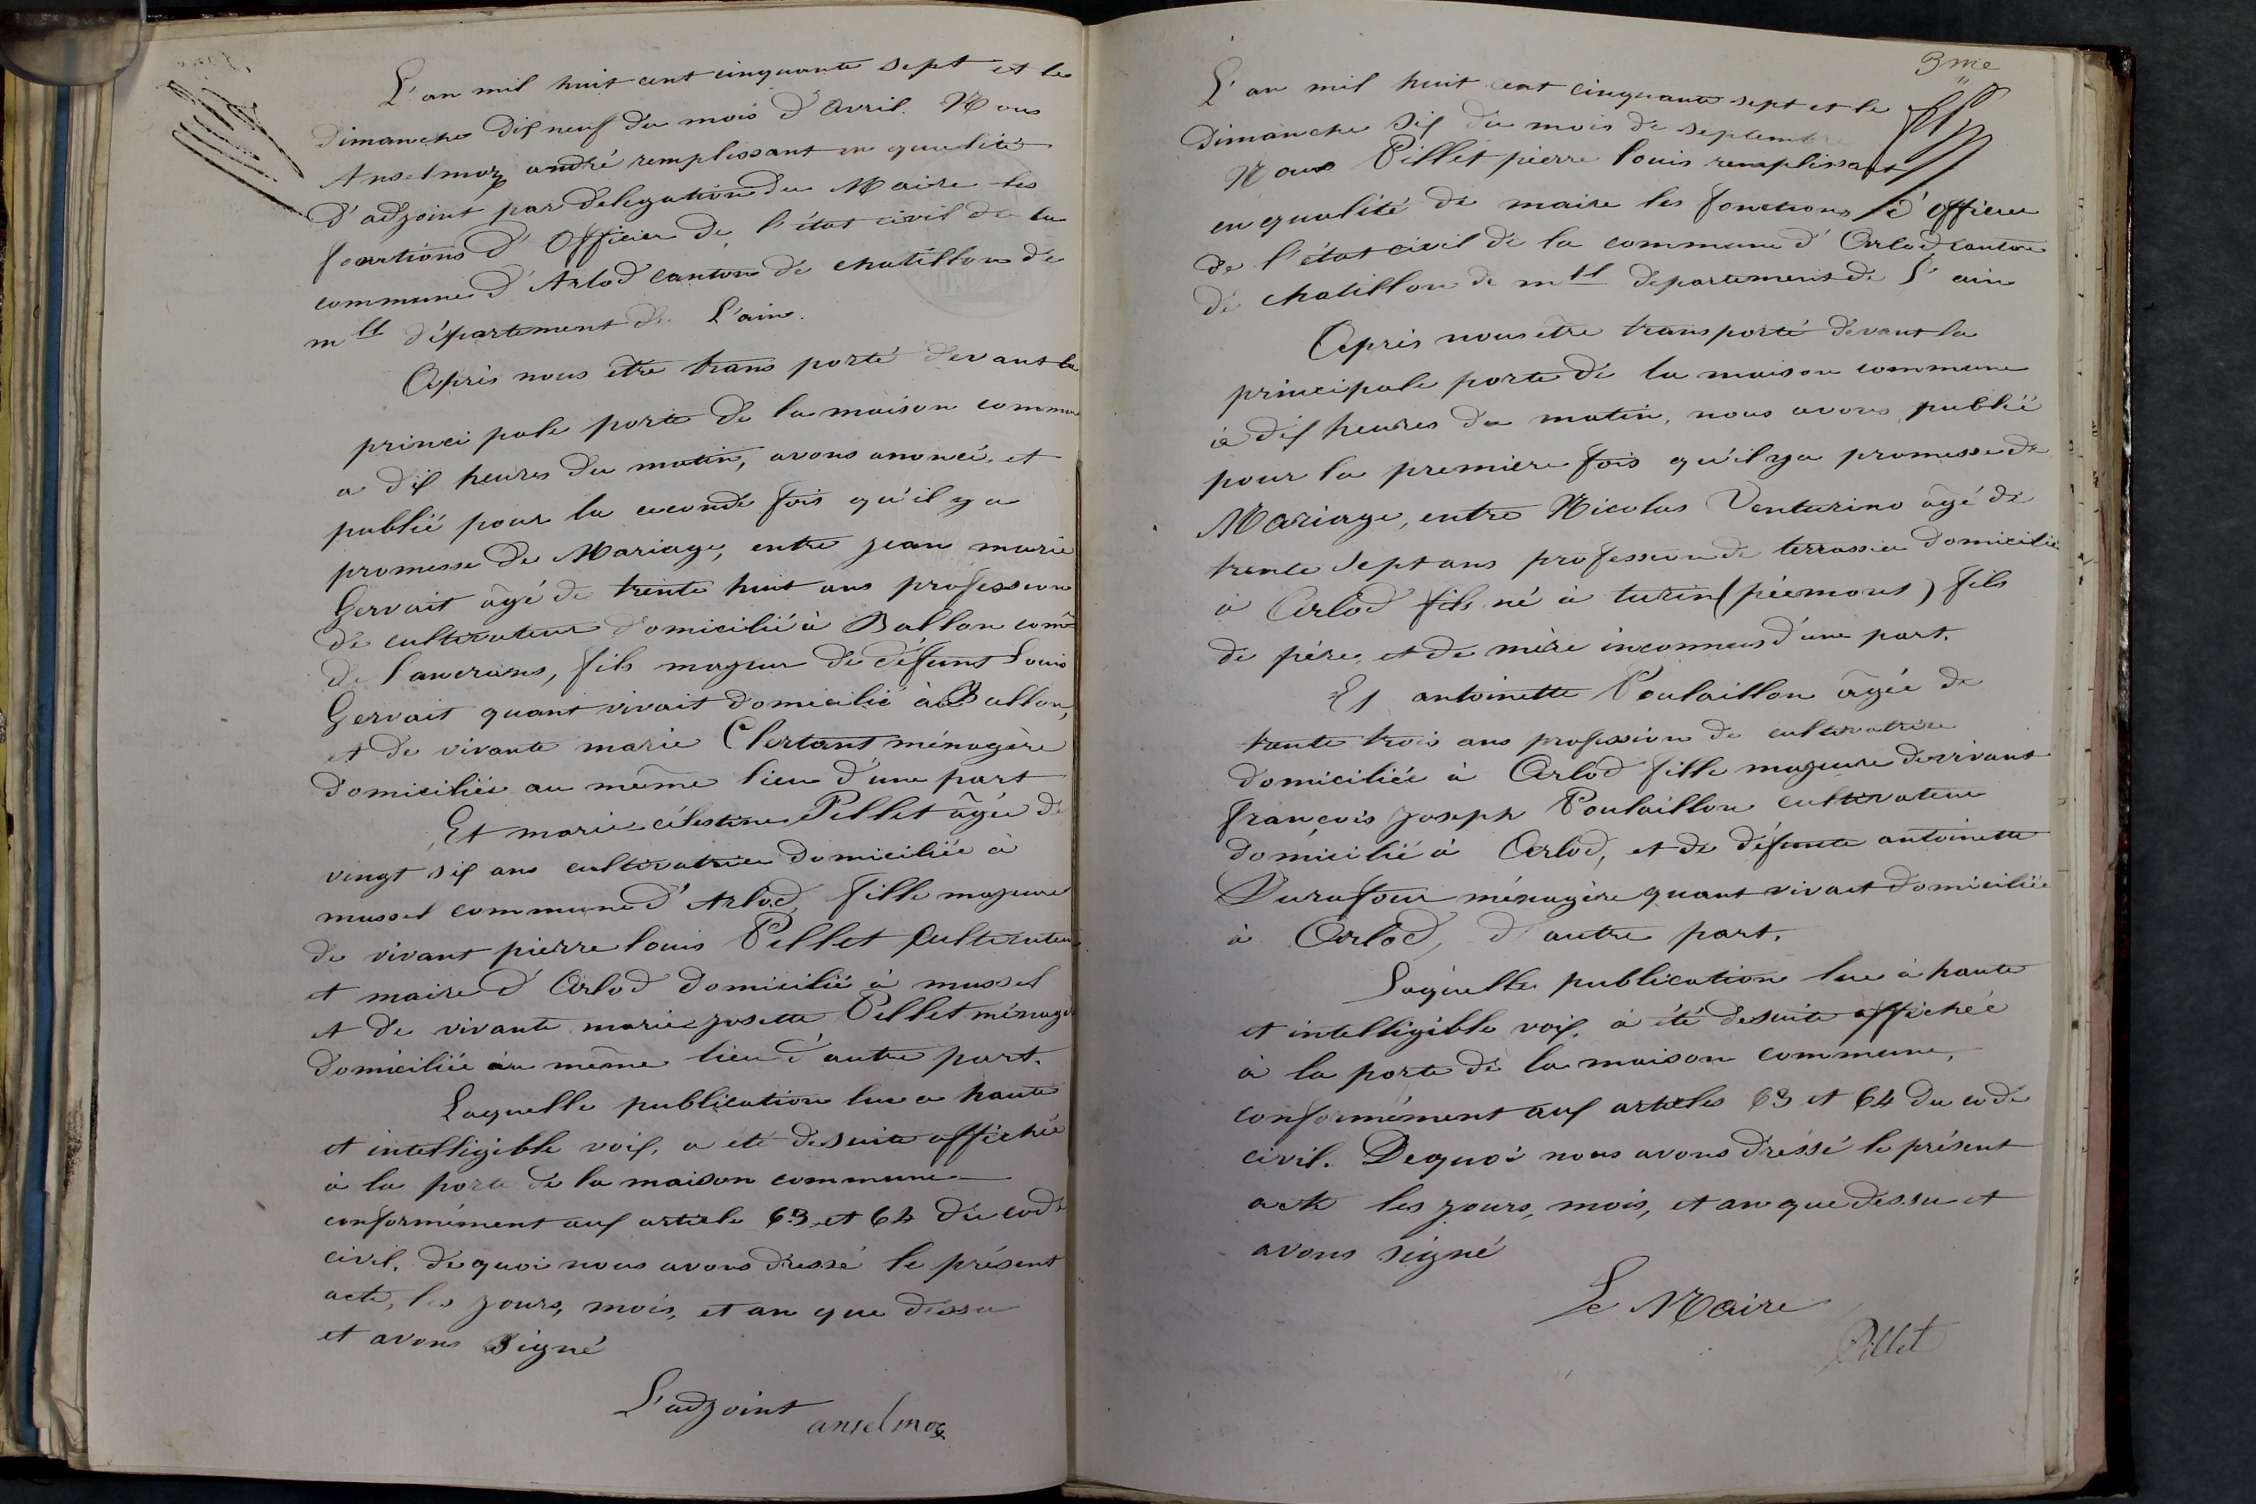 L'an mil huit cent cinquante sept et le
Dimanche dix neuf du mois d'avril. Nous
Anselmoz andré remplissant en qualité
d'adjoint par delegation du Maire les
fonctions d'Officier de l'état civil de la
commune d'Arlod canton de chatillon de
mlle département de L'ain.
Après nous être trans porté devant la
princi pale porte de la maison commune
a dix heures du matin, avons anoncé et
publié pour la ceconde fois qu'il y a
promesse de Mariage, entre jean marie
Gervait âgé de trente huit ans profession
de cultivateur domicilié à Ballon com.
de Lancrans, fils majeur de défunt Louis
Gervait quant vivait domicilié à Ballon,
et de vivante marie Clertant ménagère
domiciliée au même lieu d'une part
Et marie célestine Pellet âgée de
vingt six ans cultivatrice domiciliée à
mussel commune d'Arlod, fille majeure
de vivant pierre louis Pellet Cultivateur
et maire d'Arlod domicilié à mussel
et de vivante marie josette Pellet ménagè
domiciliée au même lieu d'autre part.
Laquelle publication lue a haute
et intelligible voix, a été desuite affichée
à la porte de la maison commune
conformément aux article 63 et 64 du code
civil. de quoi nous avons dressé le présent
acte, les jours, mois, et an que dessu
et avons signé
L'adjoint
anselmoz
3me
L'an mil huit cent cinquante sept et le
Dimanche six du mois de septembre
Nous Pillet pierre louis remplissant
en qualité de maire les fonctions d'Officier
de l'état civil de la commune d'Arlod canton
de chatillon de mlle departement de L'ain
Après nous être transporté devant la
principale porte de la maison commune
à dix heures du matin, nous avons publié
pour la première fois qu'il y a promesse de
Mariage, entre Nicolas Venturino âgé de
trente sept ans profession de terrassier domicilié
à Arlod fils né à turin (piémont) fils
de père et de mère inconnus d'une part.
Et antoinette Poulaillon âgée de
trente trois ans profession de cultivatrice
domiciliée à Arlod fille majeure de vivant
françois joseph Poulaillon cultivateur
domicilié à Arlod, et de défunte antoinette
Durafour ménagère quant vivait domiciliée
à Arlod, d'autre part.
Laquelle publication lue à haute
et intelligible voix, à été desuite affichée
à la porte de la maison commune,
conformément aux articles 63 et 64 du code
civil. Dequoi nous avons dressé le présent
acte les jours, mois, et an que dessu et
avons signé
Le Maire
Pillet